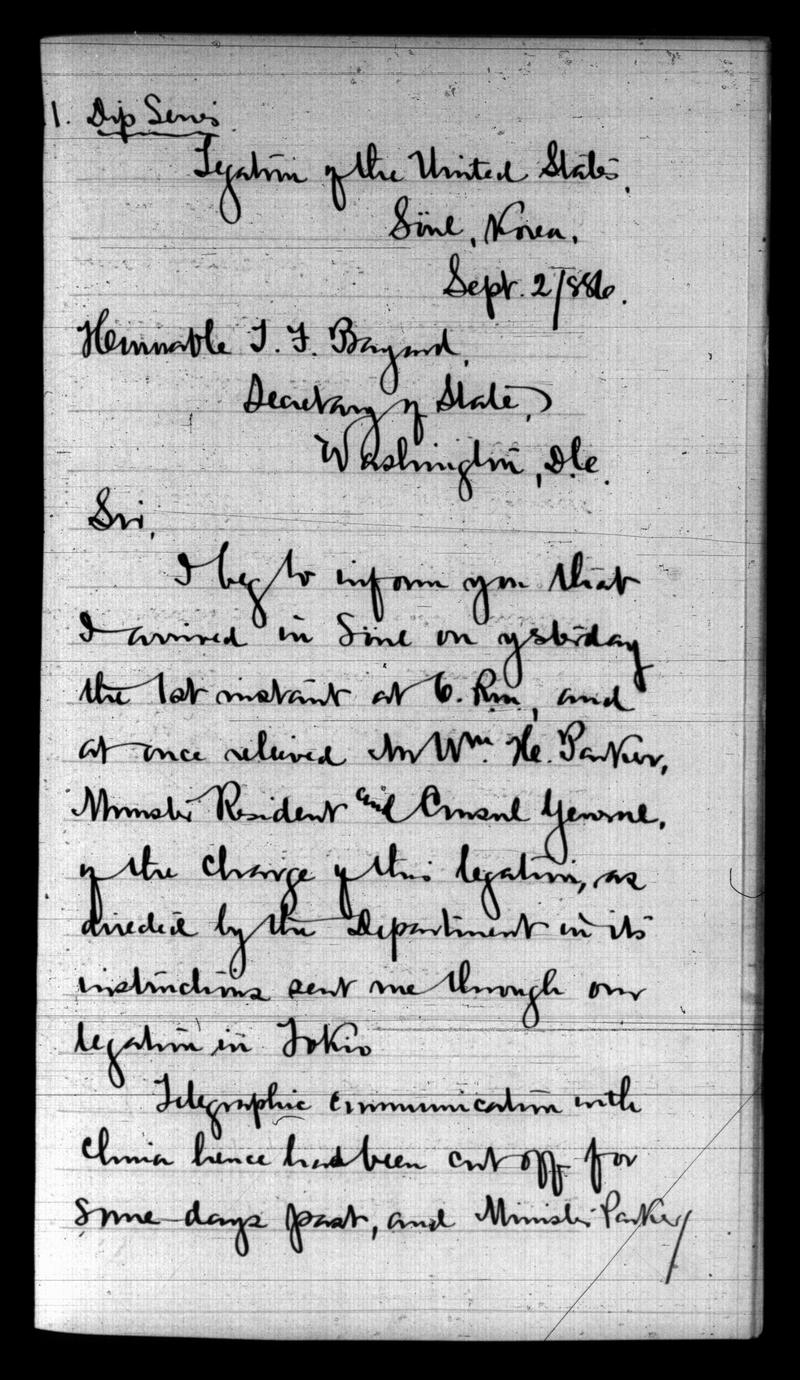 1. Dip Series.
Legation of the United States,
Söul, Korea,
Sept. 2/886.
Honorable T. F. Bayard,
Secretary of State,
Washington, D.C.
Sir,
I beg to inform you that
I arrived in Söul on ysterday
the 1st instant at 6. P.m., and
at once relieved Mr Wm. H. Parker,
Minister Resident and Consul General,
of the charge of this legation, as
directed by the Department in its
instructions sent me through our
legation in Tokio
Telegraphic communication with
China hence had been cut off for
some days past, and Minister Parker